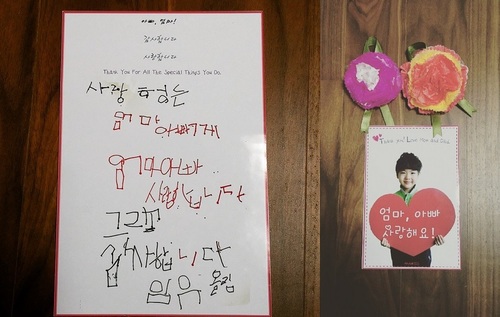 아빠, 엄마!
감사합니다
사랑합니다
Thank You For All The Special Things You Do.
사랑하는
엄마 아빠게
엄마아빠
사랑합니다
그리고
감사합니다
올림
Thank you! Love Mom and Dad.
엄마, 아빠
사랑해요!